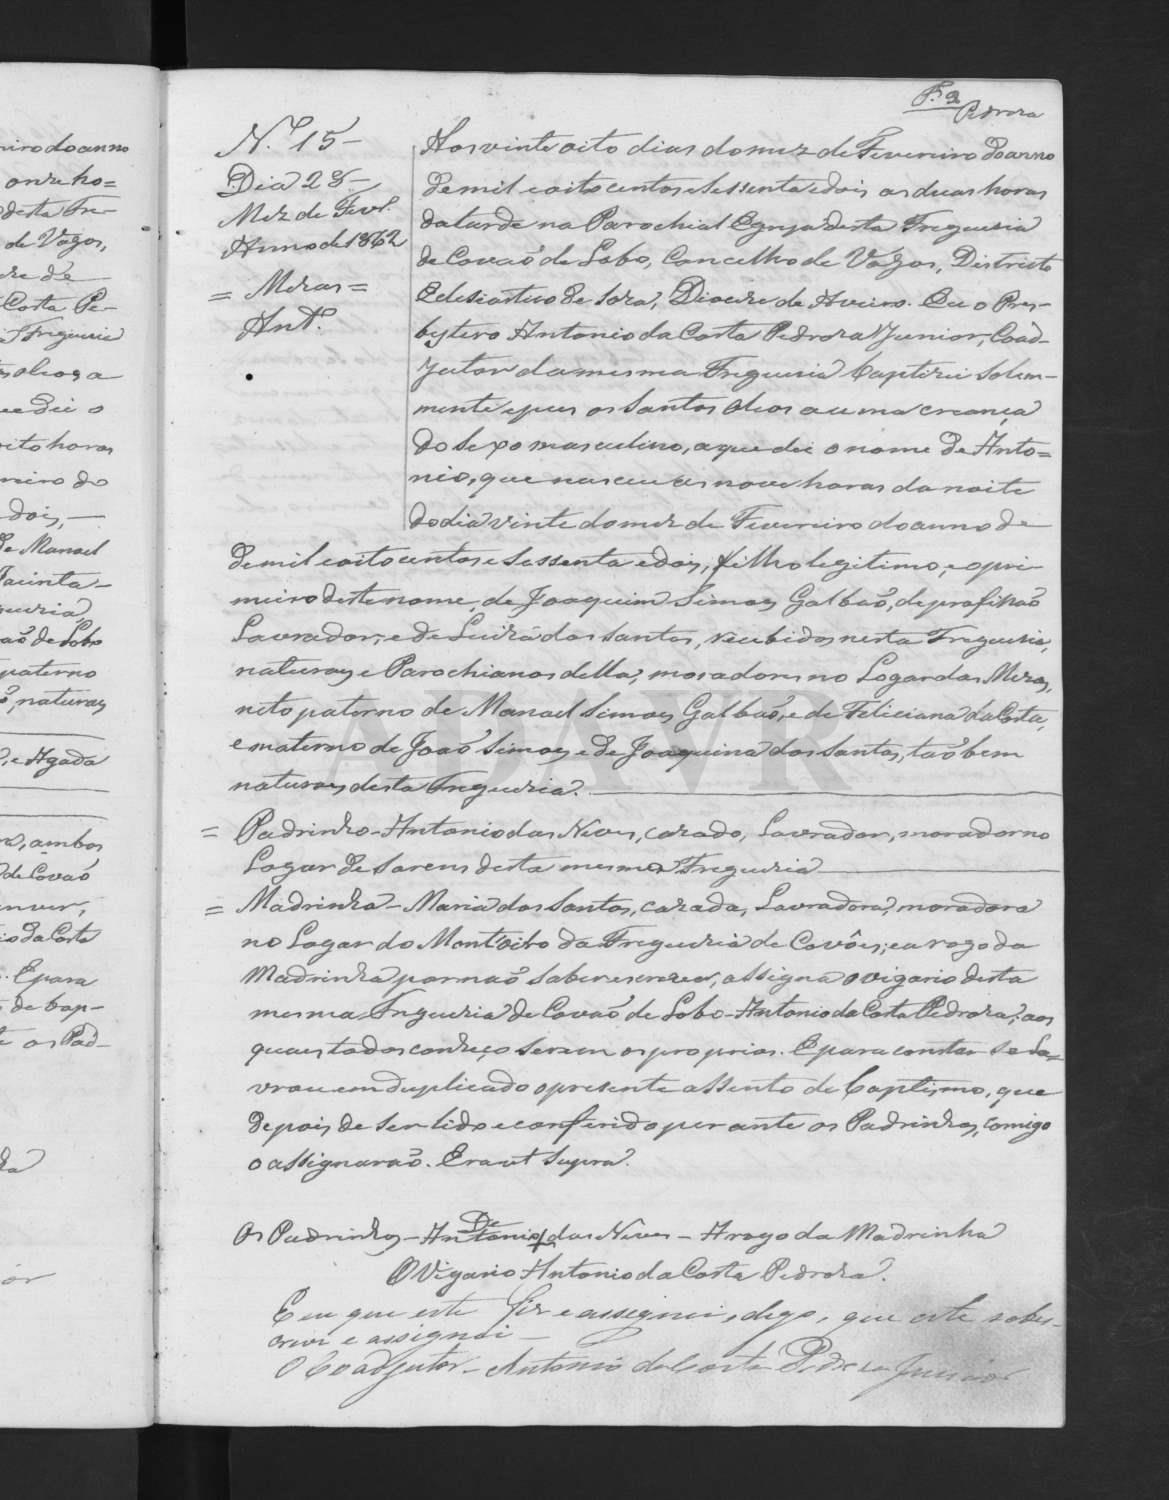 Pedroza
N.º 15 -
Dia 28 -
Mez de Fevr.
Anno de 1862
= Mezas =
Antº.
Aos vinte oito dias do mez de Fevereiro do anno
de mil e oitocentos e Sessenta e dois as duas horas
da tarde na Parochial Egreja desta Freguesia
de Covaõ do Lobo, Concelho de Vagos, Districto
Eclesiastico de Soza, Diocese de Aveiro. Eu o Pres-
bytero Antonio da Costa Pedroza Junior, Coad-
jutor da mesma Freguesia baptizei solem-
mente e pus os Santos Oleos a uma creança
do Sexo masculino, a que dei o nome de Anto=
nio, que nasceu as nove horas da noite
do dia vinte do mez de Fevereiro do anno de
de mil e oitocentos e Sessenta e dois, filho legitimo, e o pri-
meiro deste nome, de Joaquim Simoes Galbaõ, de profissaõ
Lavrador, e de Luiza dos Santos, recebidos nesta Freguesia,
naturaes e Parochianos della, moradores no Logar das Mezas,
neto paterno de Manoel Simoes Galbaõ, e de Feliciana da Costa,
e materno de Joaõ Simoes e de Joaquina dos Santos, taõbem
naturaes desta Freguesia.
= Padrinho - Antonio das Neves, cazado, Lavrador, morador no
Logar de Sarens desta mesma Freguesia
= Madrinha - Maria dos Santos, cazada, Lavradora, moradora
no Logar do Montoiro da Freguezia de Covões; e a rogo da
Madrinha por naõ saber escrever, assigna o vigario desta
mesma Freguezia de Covaõ do Lobo - Antonio da Costa Pedroza, aos
quaes todos conheço serem os proprios. E para constar se La=
vrou em duplicado o presente assento de baptismo, que
depois de ser lido e conferido perante os Padrinhos, comigo
o assignaraõ. Era ut supra.
Os Padrinhos - Antonio das Neves - A rogo da Madrinha
O Vigario Antonio da Costa Pedroza.
E eu que este fiz e assignei, digo, que este sobes-
crevi e assignei -
O Coadjutor - Antonio da Costa Pedroza Junior
niro do anno
onze ho=
desta Fre-
de Vagos,
Costa Pe-
Freguesia
oleos a
dei o
oito horas
neiro do
dois, -
de Manoel
Jacinta -
aõ do Lobo
paterno
naturaes
e Agada
ambos
de Covaõ
io da Costa
E para
de bap-
os Pad-
or
ADAVR